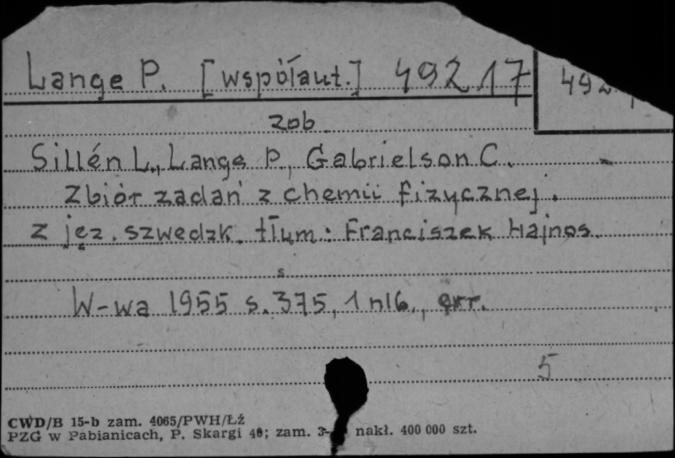 Lange P. [współaut.] 49217
zob.
Sillén L., Lange P., Gabrielson C.
Zbiór zadań z chemii fizycznej.
Z jęz. szwedzk. tłum.: Franciszek Hajnos
W-wa 1955 s. 375, 1 nlb., err.
5
CWD/B 15-b zam. 4065/PWH/Łź
PZG w Pabianicach, P. Skargi 40; zam. nakł. 400 000 szt.